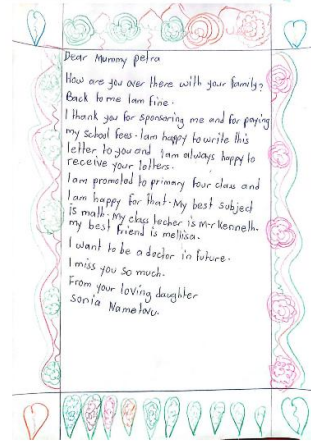 Dear Mummy petra
How are you over there with your family?
Back to me Iam fine.
I thank you for sponsaring me and for paying
my school fees. Iam happy to write this
letter to you and Iam always happy to
receive your letters.
Iam promoted to primary four class and
Iam happy for that. My best subject
is math. My class techer is Mr Kenneth.
my best friend is mellisa.
I want to be a doctor in future.
I miss you so much.
From your loving daughter
Sonia Nametovu.